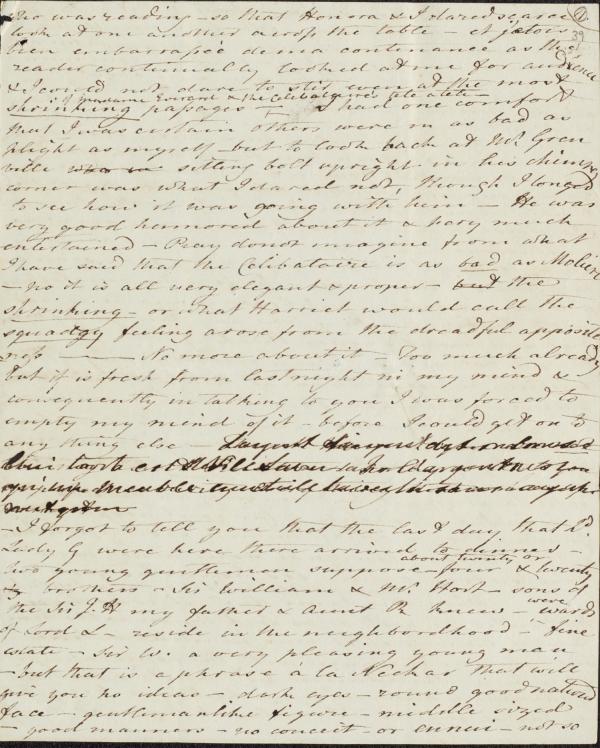 who was reading – so that Honora & I dared scarce
look at one another across the table – et j'étois
bien embarrassée de ma contenance as the
reader continually looked at me for audience
& I could not dare to stir even at the most
shrinking passages – I had one comfort
of Madame Evrard & the Celibataire tete a tete –
that I was certain others were in as bad
plight as myself – but to look back at Mr Gren
ville sitting bolt upright in his chimney
corner was what I dared not, though I longed
to see how it was going with him – He was
very good humored about it & very much
entertained – Pray do not imagine from what
I have said that the Celibataire is as bad as Moliere
– no it is all very elegant & proper – but the
shrinking – or what Harriet would call the
squadgy feeling arose from the dreadful apposite
ness —— No more about it – Too much already
but it is fresh from last night in my mind &
consequently in talking to you I was forced to
empty my mind of it – before I could get on to
any thing else –
– I forgot to tell you that the last day that Ld.
Lady G were here there arrived to dinner –
two young gentlemen suppose – four & twenty
about twenty or
brothers – Sir William & Mr. Hort – sons of
the Sir J. H my father & Aunt R knew – wards
were
of Lord L – reside in the neighbordhood – fine
estate – Sir W. a very pleasing young man
– but that is a phrase à la Neckar that will
give you no ideas – dark eyes – round good natured
face – gentlemanlike figure – middle sized
– good manners – no conceit – or ennui – not so